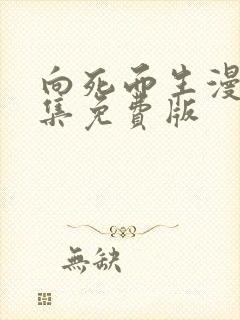 向死而生漫
集免費版
無缺